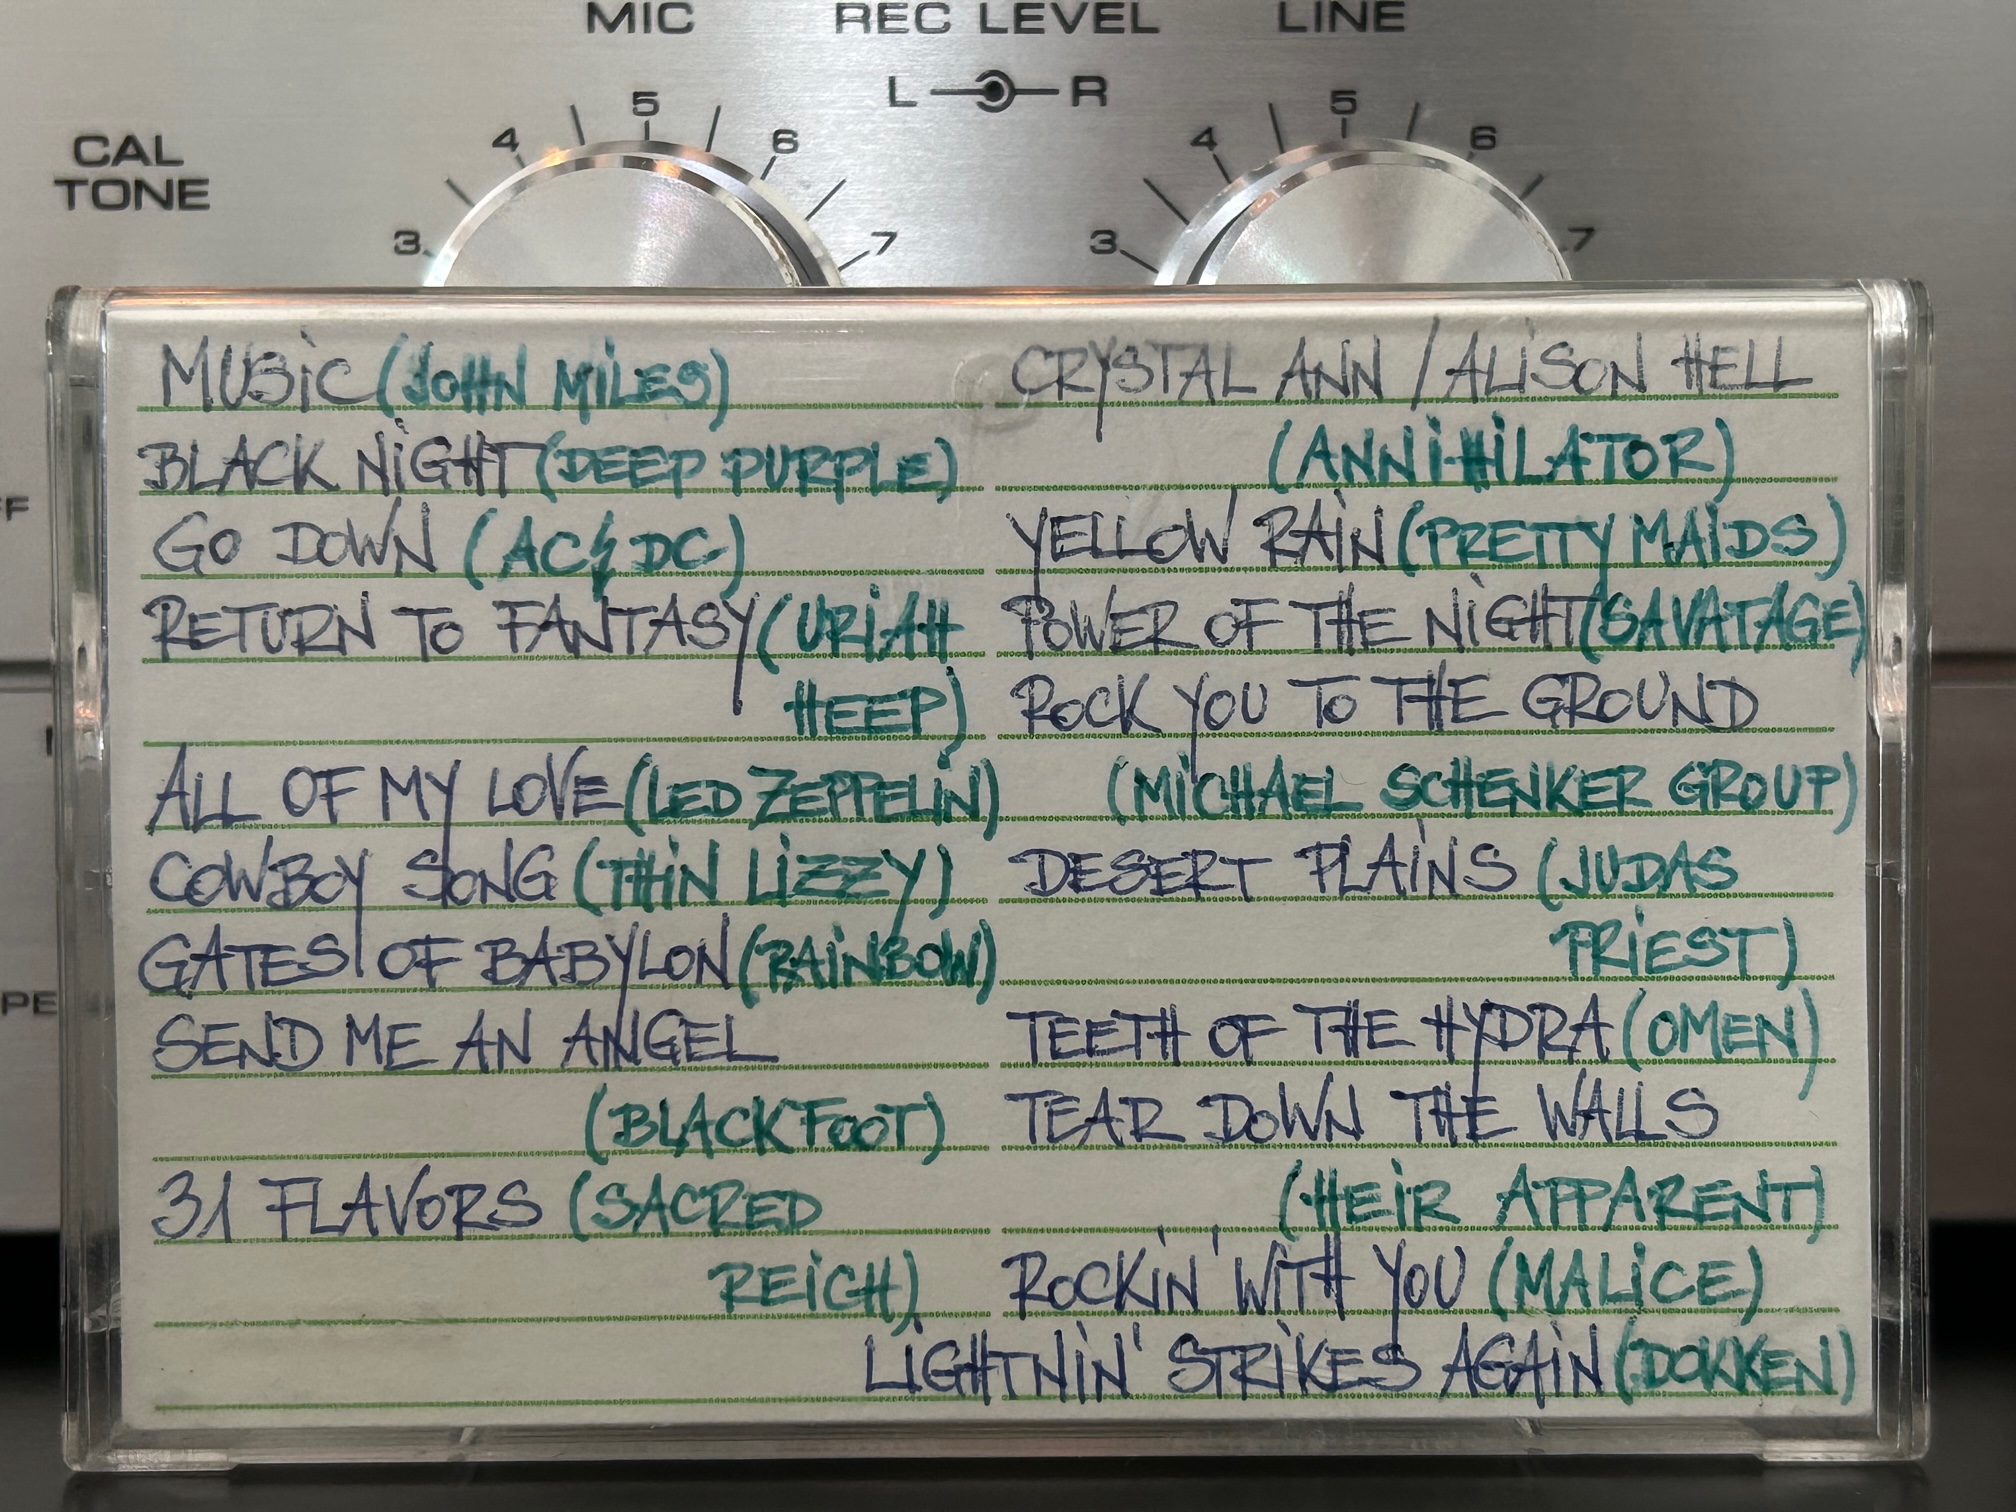 MIC REC LEVEL LINE
L R
CAL
TONE
3 4 5 6 7
3 4 5 6 7
MUSiC (JOHN MiLES)
BLACK NiGHT (DEEP PURPLE)
GO DOWN (AC⚡DC)
RETURN TO FANTASY (URiAH
HEEP)
ALL OF MY LOVE (LED ZEPPELiN)
COWBOY SONG (THiN LiZZY)
GATES OF BABYLON (RAiNBOW)
SEND ME AN ANGEL
(BLACKFOOT)
31 FLAVORS (SACRED
REiGH)
CRYSTAL ANN / ALiSON HELL
(ANNiHiLATOR)
YELLOW RAiN (PRETTY MAiDS)
POWER OF THE NiGHT (SAVATAGE)
ROCK YOU TO THE GROUND
(MiCHAEL SCHENKER GROUP)
DESERT PLAiNS (JUDAS
PRiEST)
TEETH OF THE HYDRA (OMEN)
TEAR DOWN THE WALLS
(HEiR APPARENT)
ROCKiN' WiTH YOU (MALiCE)
LiGHTNiN' STRiKES AGAiN (DOKKEN)